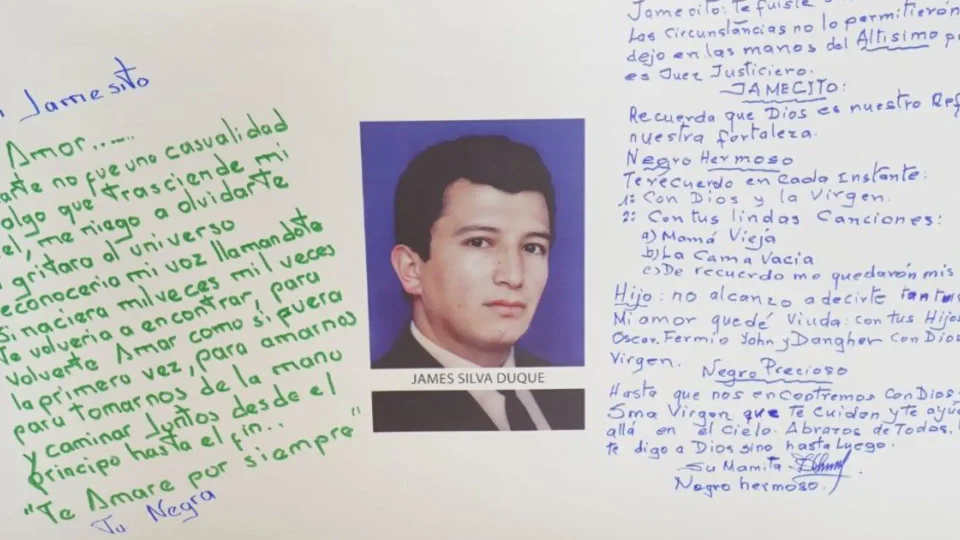 Jamesito
Amor.....
arte no fue uno casualidad
algo que trasciende mi
el, me niego a olvidarte
gritara al universo
econoceria mi voz llamandote
si naciera mil veces mil veces
Te volveria a encontrar, para
volverte Amar como si fuera
la primera vez, para amarnos
para tomarnos de la mano
y caminar Juntos desde el
principo hasta el fin...
"Te Amare por siempre"
Tu Negra
JAMES SILVA DUQUE
Jamecito: te fuiste
Las Circunstáncias no lo permitierón
dejo en las manos del Altisimo
es Juez Justiciero.
JAMECITO:
Recuerda que Dios es nuestro Ref
nuestra fortaleza.
Negro Hermoso
Te recuerdo en Cada Instante:
1: Con Dios y la Virgen.
2: Con tus lindas Canciones:
a) Mamá Vieja
b) La Cama Vacia
c) De recuerdo me quedarón mis
Hijo: no alcanzo a decirte tantas
Mi amor quedé Viuda: con tus Hijos
Oscar. Fermin John y Dangher Con Dios
Virgen.
Negro Precioso
Hasta que nos encontremos Con Dios
Sma Virgen que Te Cuidan y te ayu
allá en el Cielo. Abrazos de Todos.
te digo a Dios sino hasta Luego.
Su Mamita
Negro hermoso.